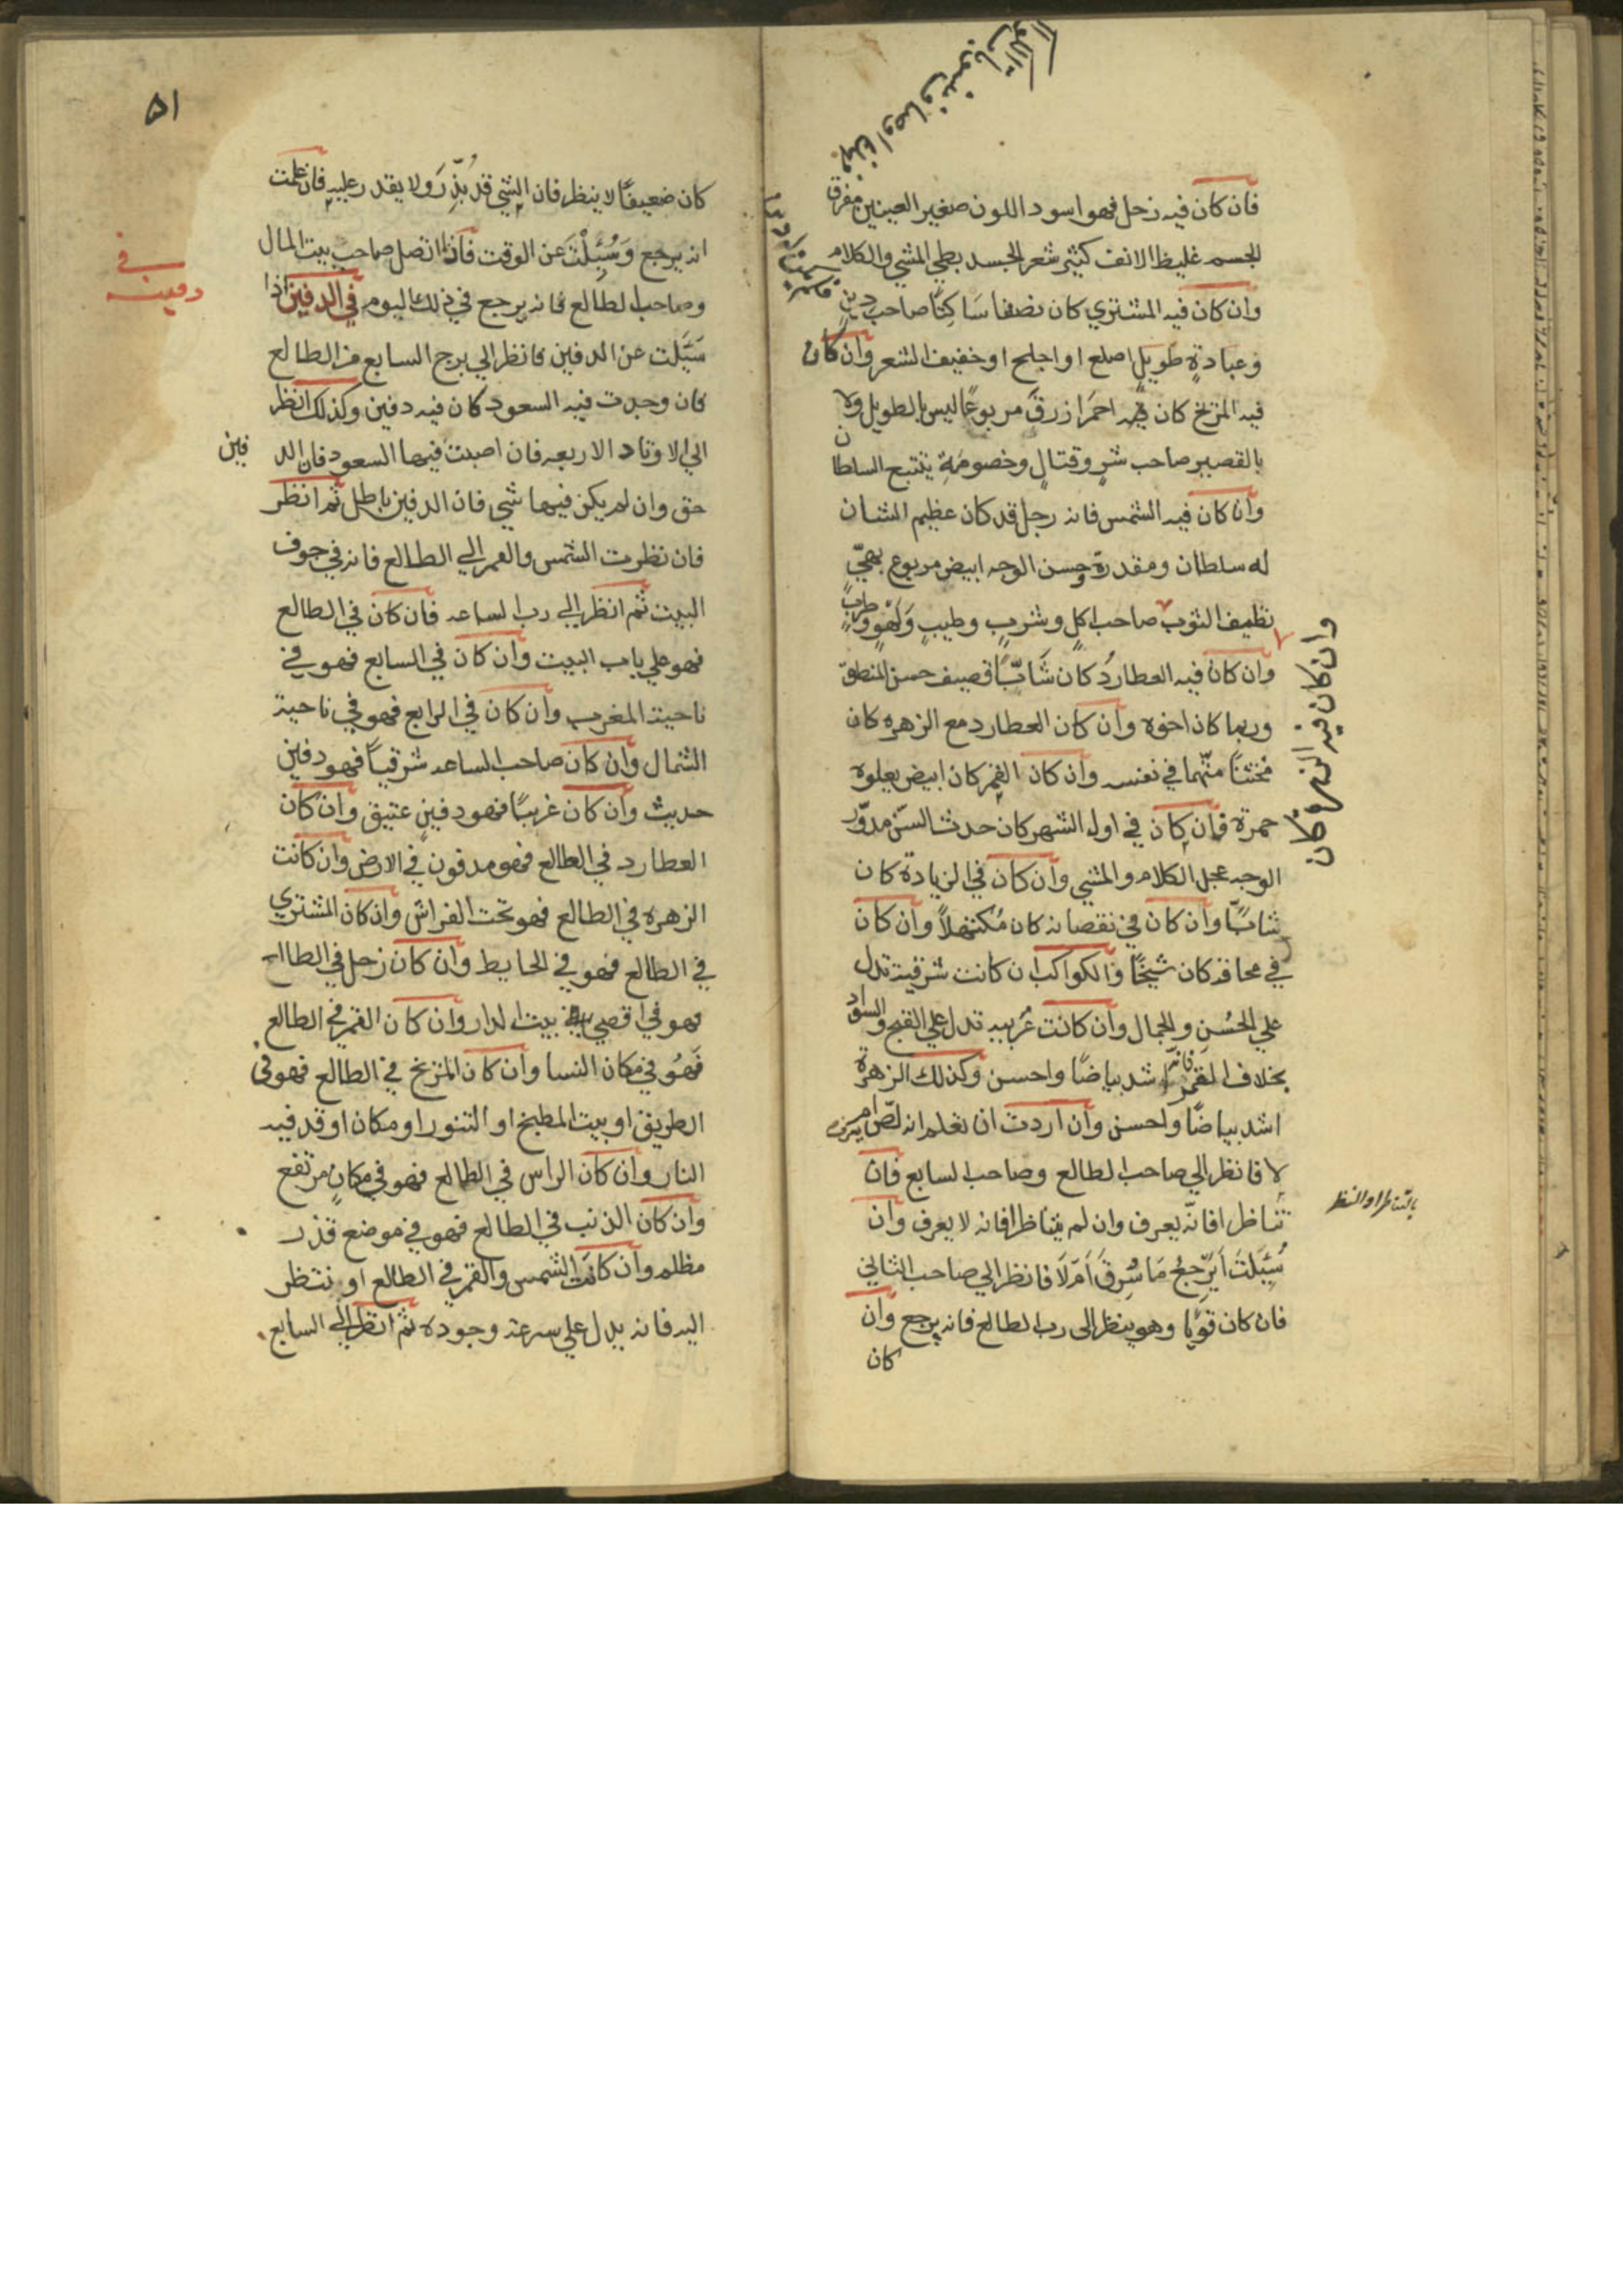 فان كان فيه زحل فهو اسود اللون صغير العينين مفرق
الجسم غليظ الانف كثير شعر الجسد بطي المشي والكلام
وان كان فيه المشتري كان نصفا سَاكِتًا صاحب دين
وعبادةٍ طويلٍ اصلع او اجلح او خفيف الشعر وان كان
فيه المريخ كان فيه احمَرا زرقَ مربوعًا ليس بالطويل ولا
بالقصير صاحب شرٍ وقتالٍ وخصومَةٍ يتتبع السلطان
وان كان فيه الشمس فانه رجل قد كان عظيم الشان
له سلطان ومقدرة وحسن الوجه ابيض مربوع بهيّ
نظيف الثوب صاحب اكلٍ وشربٍ وطيبٍ وَلَهْوٍ وطربٍ
وان كان فيه العطاردُ كان شَابّاً قصيف حسن المنطق
وربما كان اخوه وان كان العطارد مع الزهره كان
مخنثاً متّهما في نفسه وان كان القمر كان ابيض يعلوه
حمرة فان كان في اول الشهر كان حدث السنّ مدوّر
الوجه عجل الكلام والمشي وان كان في الزيادة كان
شابّاً وان كان في نقصانه كان مُكتهلاً وان كان
في محاقه كان شيخًا والكواكب ان كانت شرقية تدل
علي الحُسْنِ والجمال وان كانت غربيه تدل علي القبح والسواد
بخلاف القمر فانه اشد بياضًا واحسن وكذلك الزهرة
اشد بياضًا واحسن وان اردت ان تعلم انه لصّ ام
لا فانظر الي صاحب الطالع وصاحب السابع فان
تناظرا فانّه يعرف وان لم يتناظرا فانه لا يعرف وان
سُئِلَتَ اَيَرْجعُ مَا سُرِقَ اَمْ لَا فانظر الي صاحب الثاني
فان كان قويا وهو ينظر الى رب الطالع فانه يرجع وان
كان
وان كان فيه الزهرة كان
بالتناظر او النظر
٥١
كان ضعيفًا لا ينظر فان الشي قد بُذّرَ ولا يقدر عليه فان علمت
انه يرجع وَسُئِلْتَ عن الوقت فاذا اتصل صاحب بيت المال
وصاحب الطالع فانه يرجع في ذلك اليوم في الدفين اذا
سَئَلت عن الدفين فانظر الي برج السابع من الطالع
فان وجدت فيه السعود كان فيه دفين وكذلك انظر
الي الاوتاد الاربعه فان اصبت فيها السعود فان الدفين
حق وان لم يكن فيها شي فان الدفين باطل ثم انظر
فان نظرت الشمس والقمر الي الطالع فانه في جوف
البيت ثم انظر الي رب الساعه فان كان في الطالع
فهو علي باب البيت وان كان في السابع فهو في
ناحية المغرب وان كان في الرابع فهو في ناحية
الشمال وان كان صاحب الساعه شرقياً فهو دفين
حديث وان كان غربيًا فهو دفين عتيق وان كان
العطارد في الطالع فهو مدفون في الارض وان كانت
الزهره في الطالع فهو تحت الفراش وان كان المشتري
في الطالع فهو في الحايط وان كان زحل في الطالع
فهو في اقصي بيت الدار وان كان القمر في الطالع
فَهُو في مكان النسا وان كان المريخ في الطالع فهو في
الطريق او بيت المطبخ او التنور او مكان اوقد فيه
النار وان كان الراس في الطالع فهو في مكانٍ مرتفع
وان كان الذنب في الطالع فهو في موضع قذر
مظلم وان كانت الشمس والقمر في الطالع او تنظر
اليه فانه يدل علي سرعة وجوده ثم انظر الي السابع
في
دفين